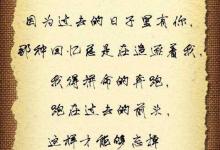 因为过去的日子里有你，
那种回忆总是在追逐着我，
我得拼命的奔跑，
跑在过去的前头，
这样才能够忘掉